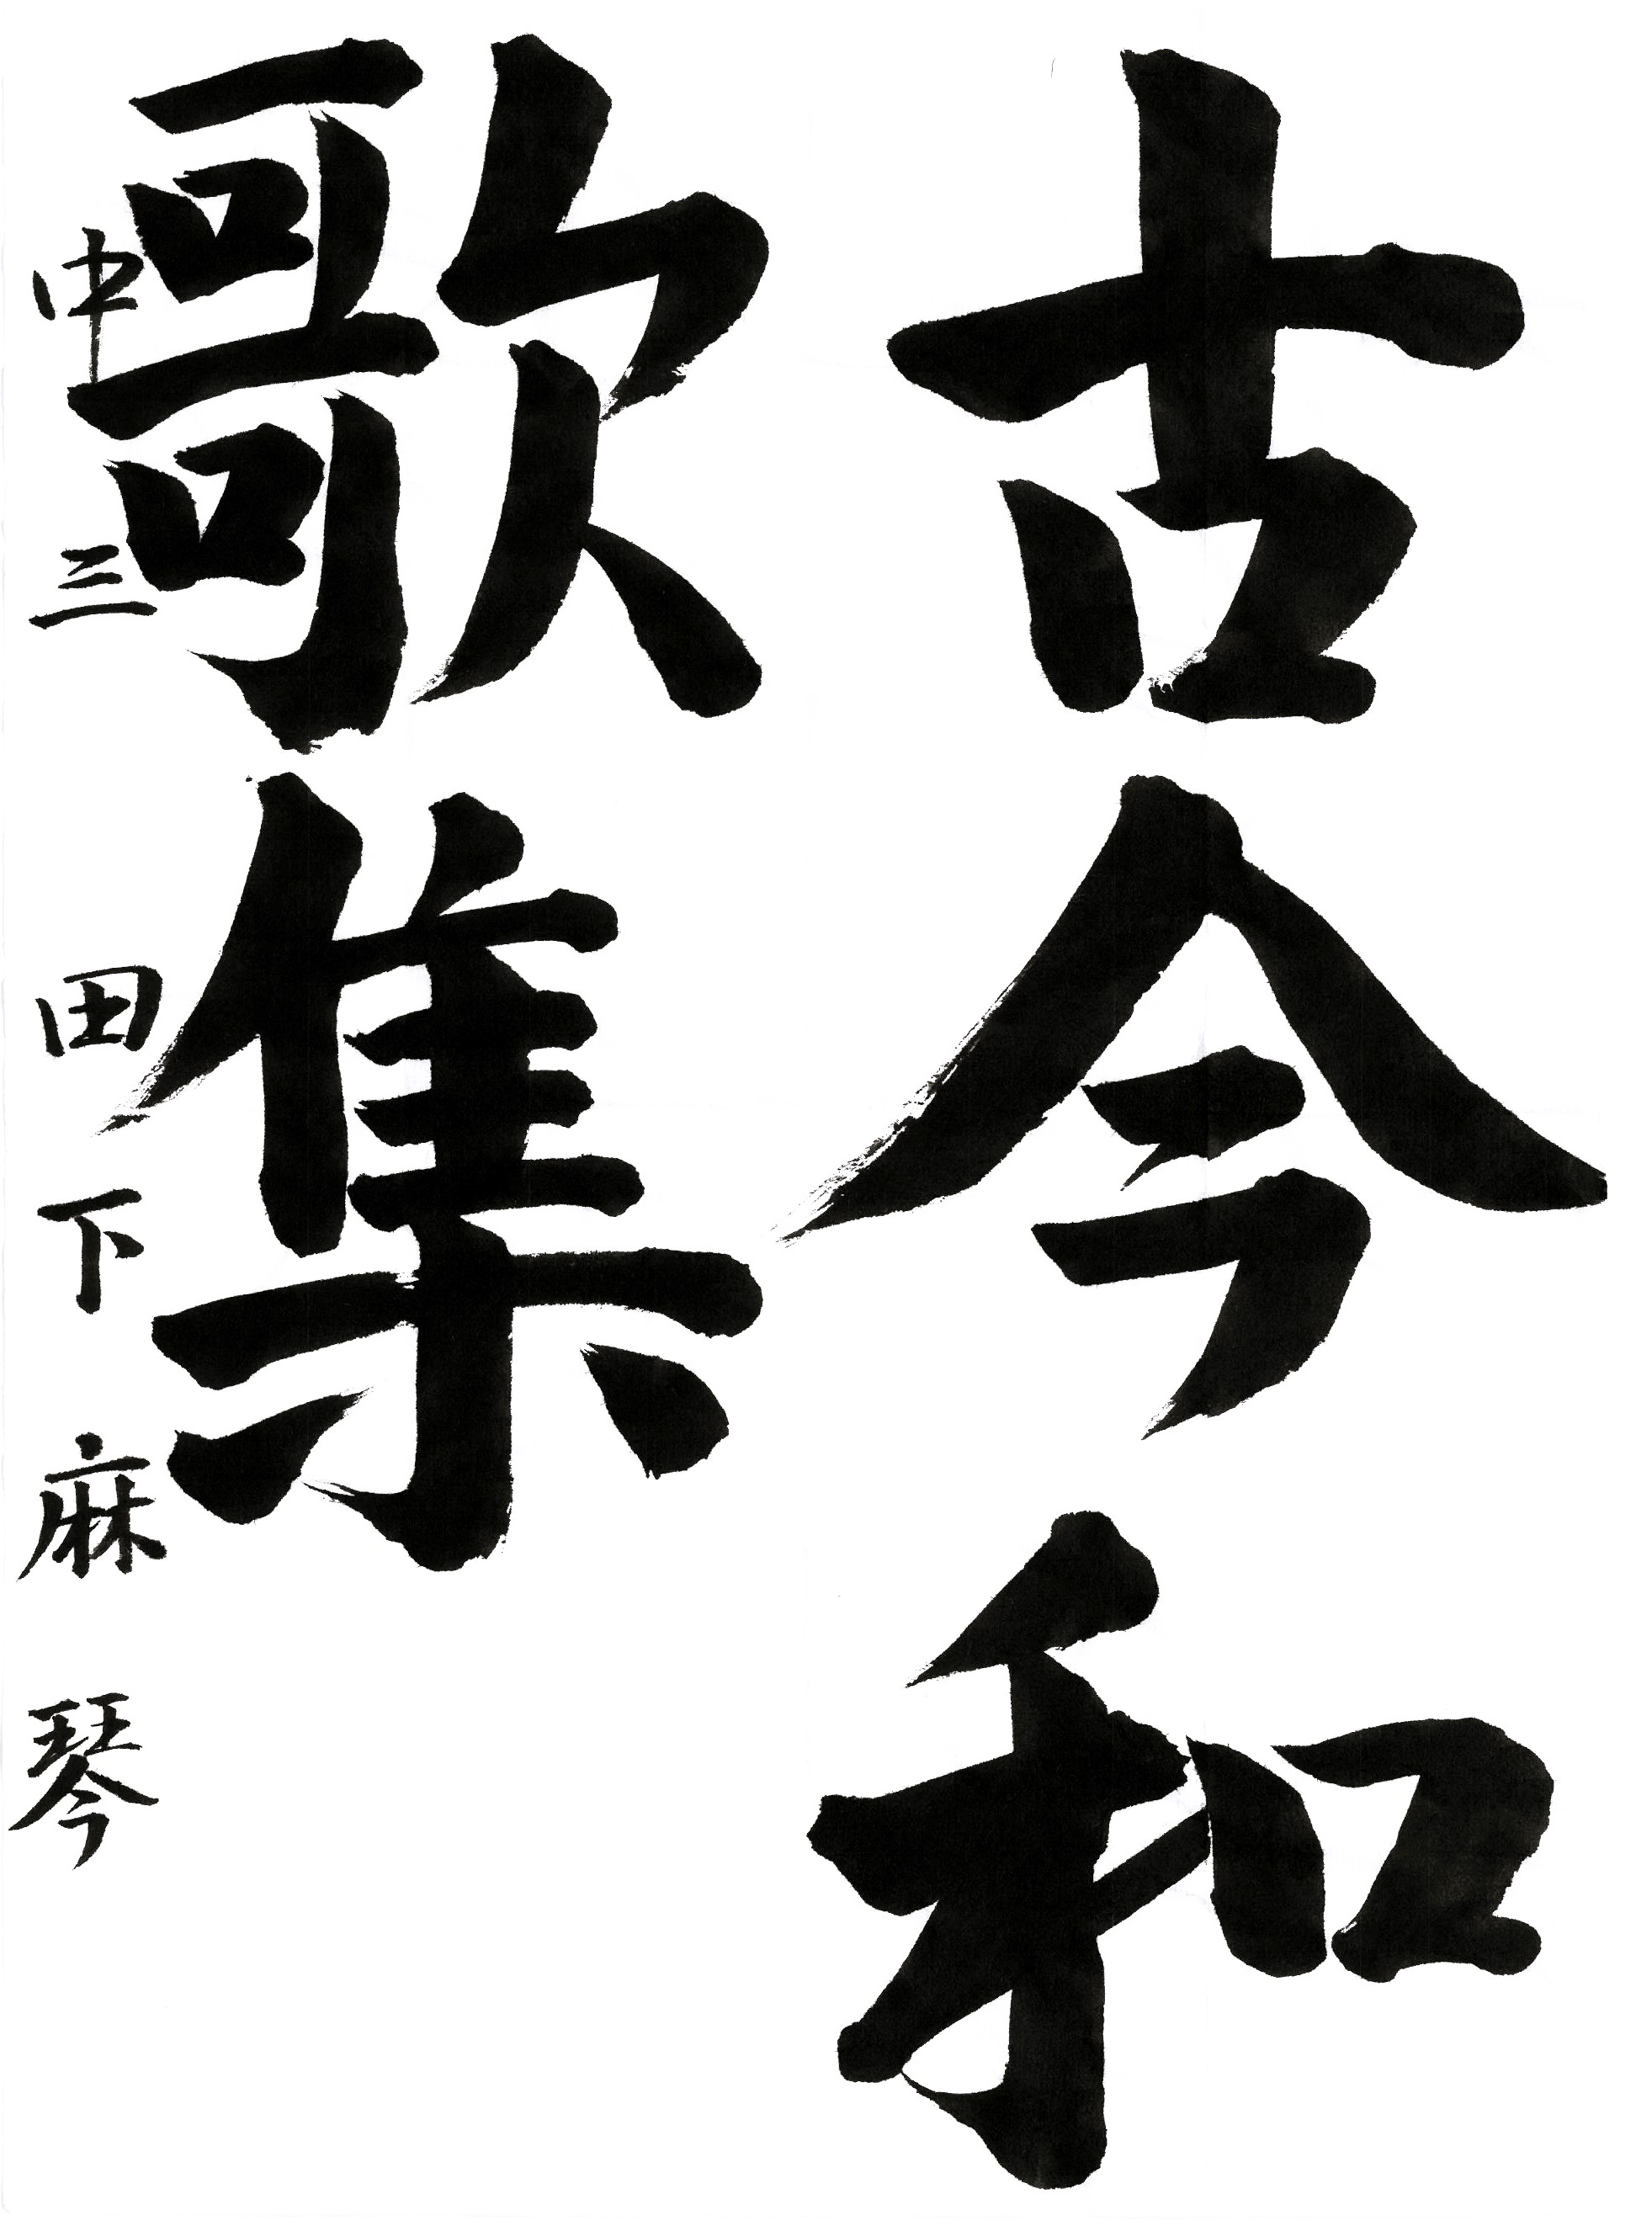 古今和
歌集
中三 田下麻琴